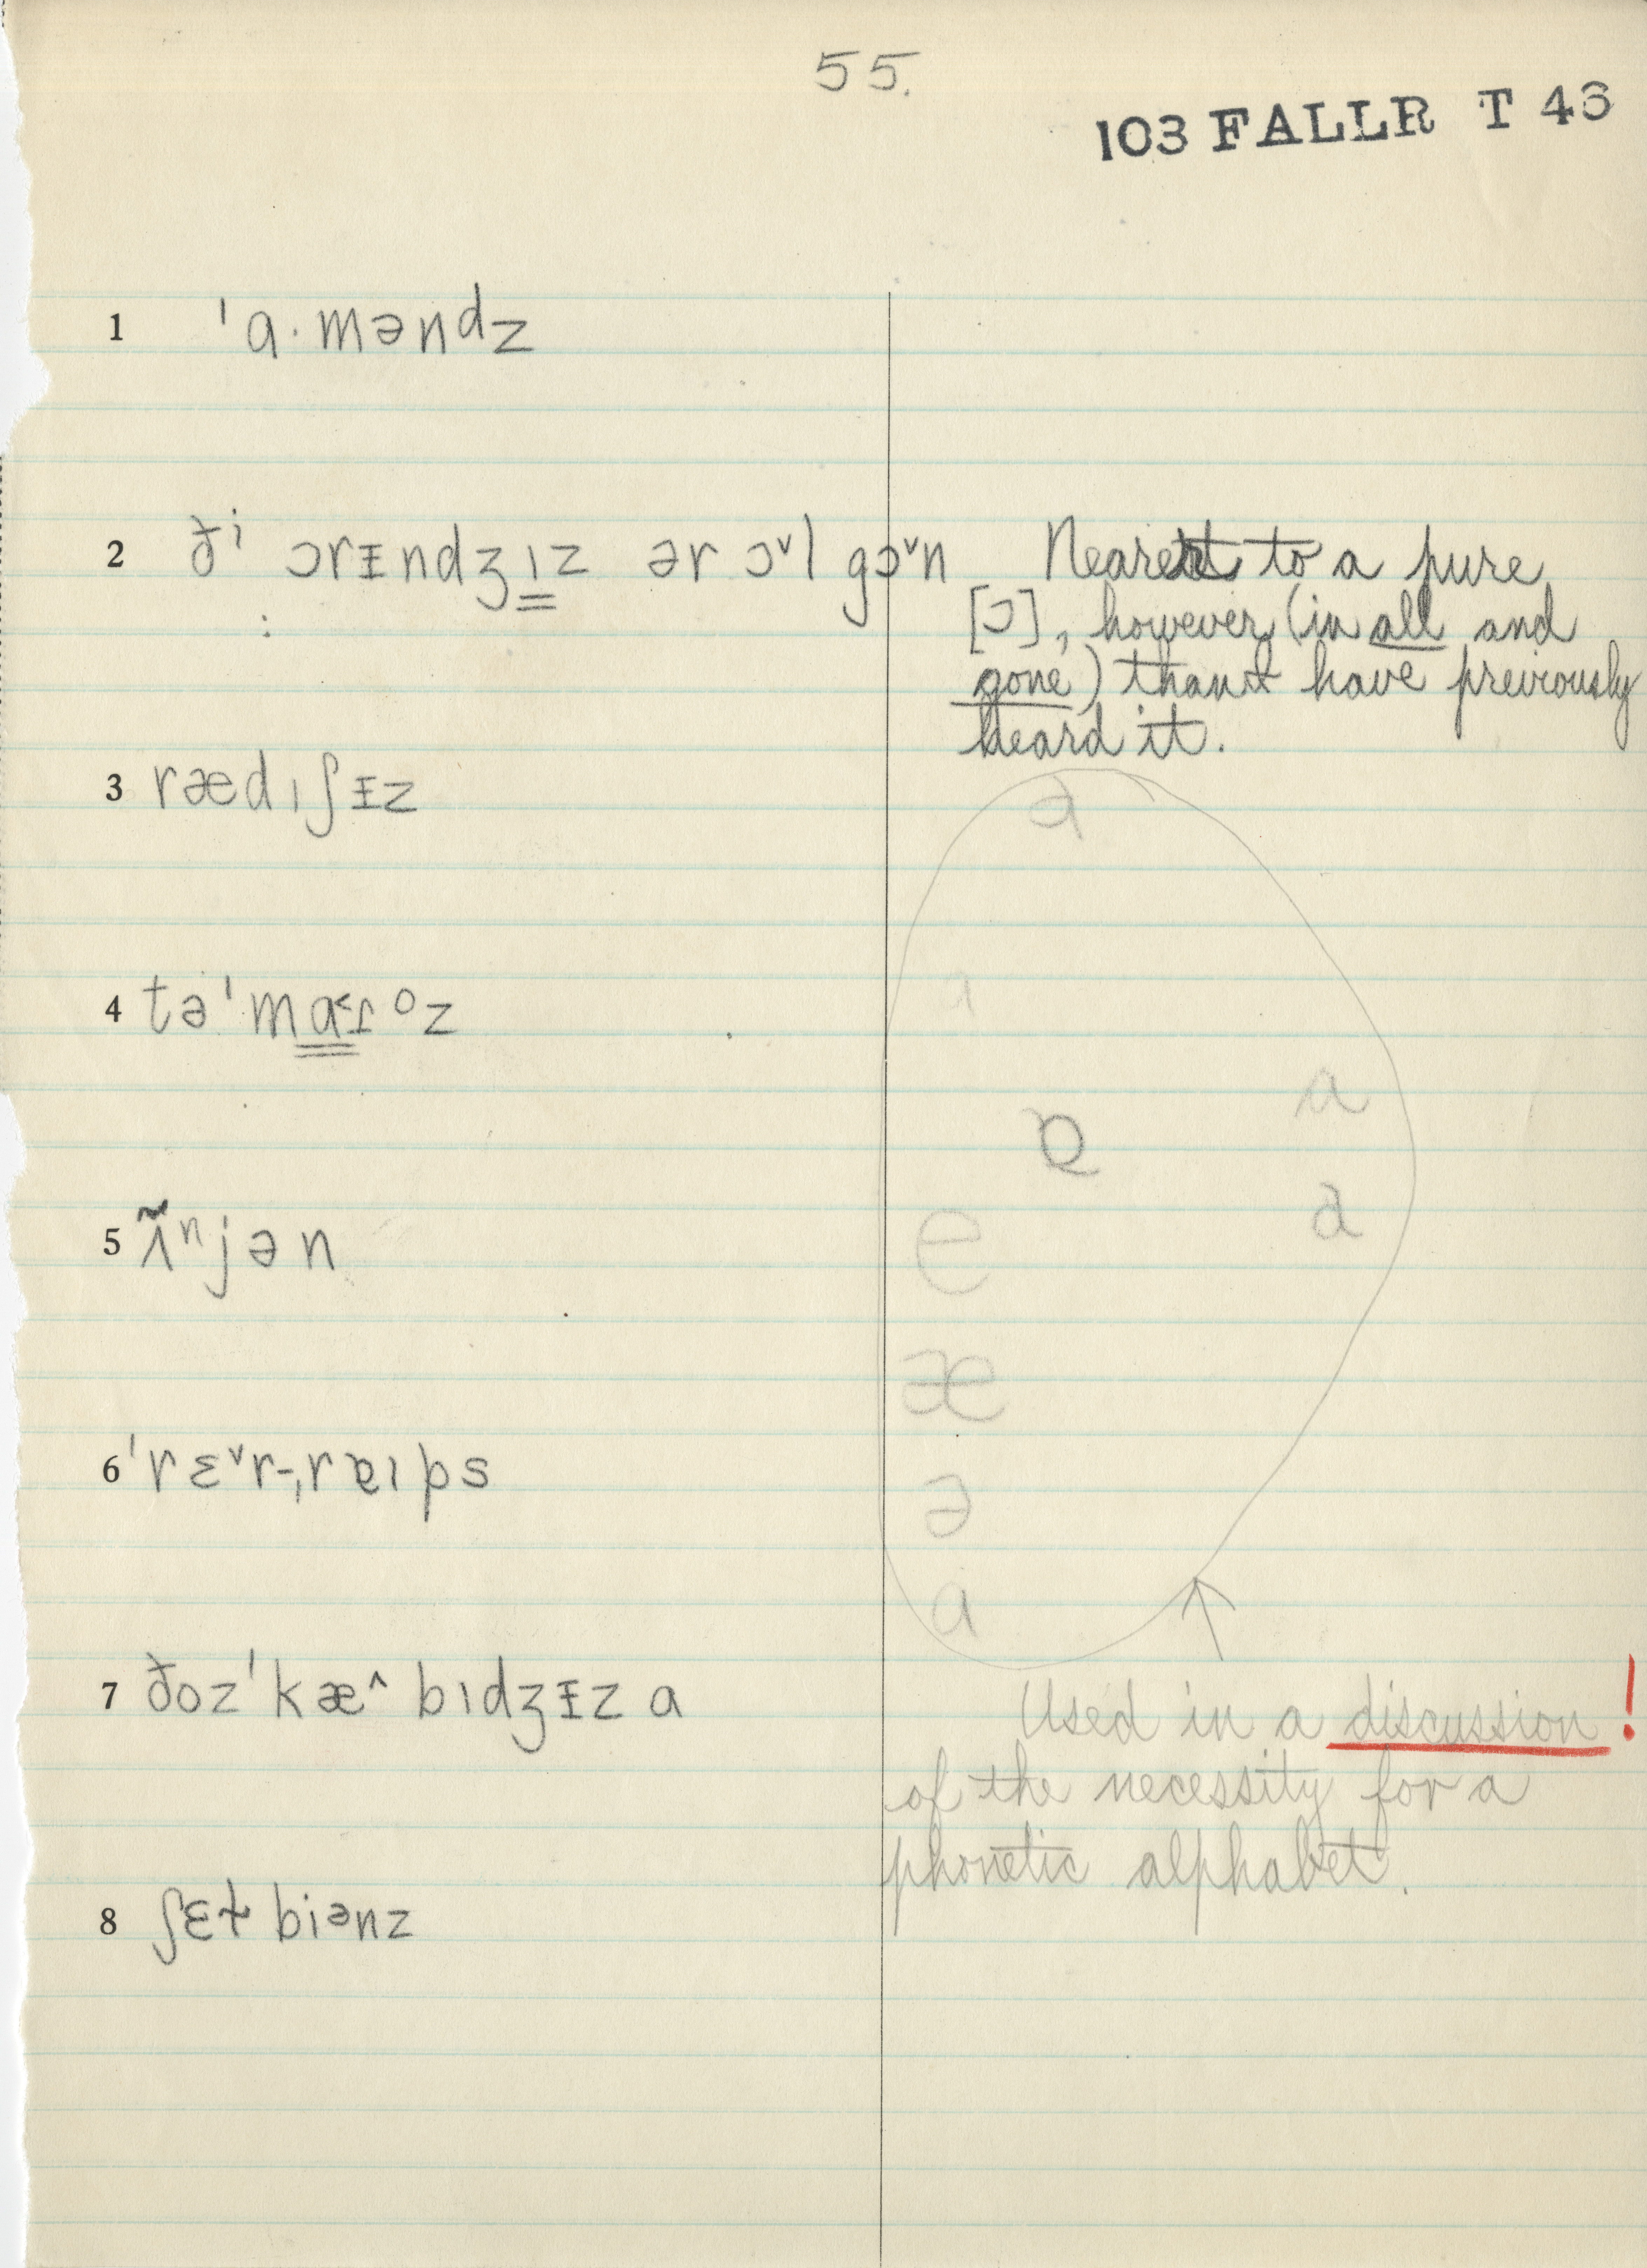 55.
103 FALLR T 43
1 ˈɑ·məndz
2 ðⁱ ɔrɪ̵ndʒɪz ər ɔ˅l gɔ˅n Nearest to a pure
[ɔ], however, (in all and
gone) than I have previously
heard it.
3 rædɪʃɪ̵z
ə
4 təˈmɑ˂ɾoz
ɪ
a
ɐ
5 ʌ̃ⁿjən
e
æ
6 ˈrɛ˅r-ˌrɐɪps
ə
a
7 ðozˈkæ^bɪdʒɪ̵z ɑ
Used in a discussion!
of the necessity for a
phonetic alphabet.
8 ʃɛɫbiənz